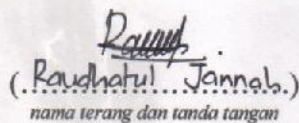 (Raudhatul Jannah.)
nama terang dan tanda tangan